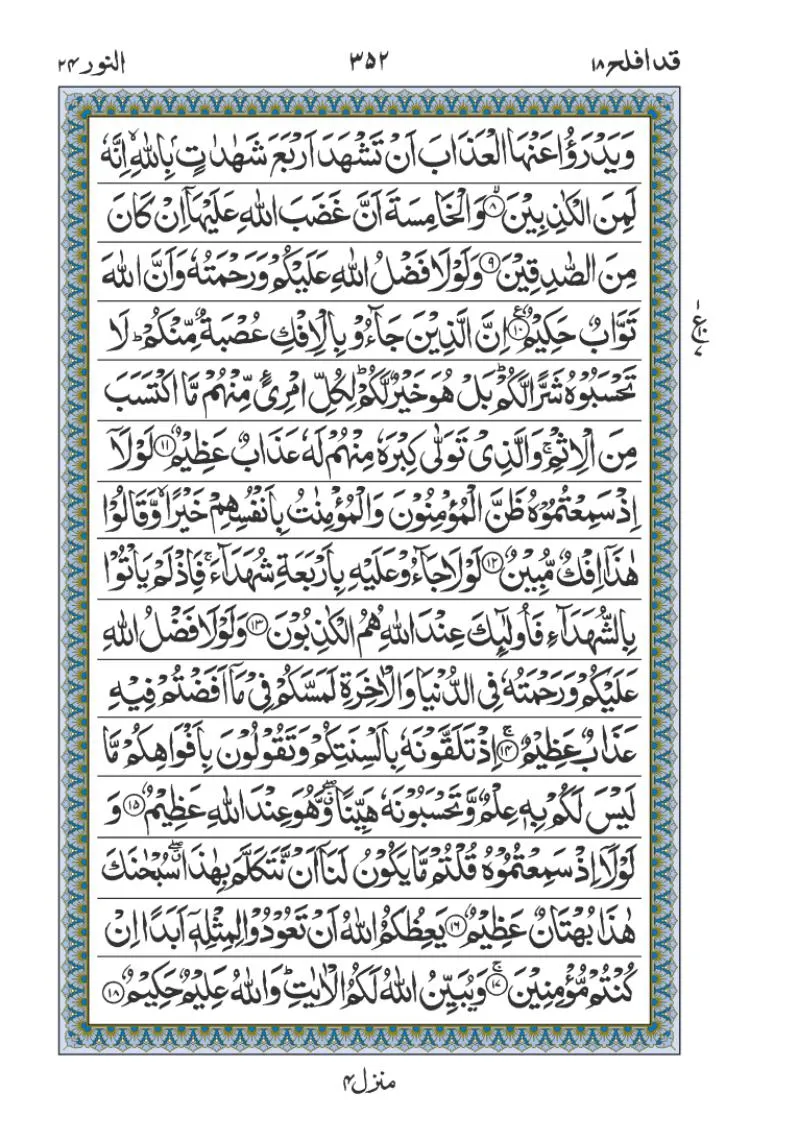 قد افلح ۱۸ ۳۵۲ النور ۲۴
وَيَدْرَؤُا عَنْهَا الْعَذَابَ اَنْ تَشْهَدَ اَرْبَعَ شَهٰدٰتٍۭ بِاللّٰهِ ۙ اِنَّهٗ
لَمِنَ الْكٰذِبِيْنَ ۙ‏﴿۸﴾ وَالْخَامِسَةَ اَنَّ غَضَبَ اللّٰهِ عَلَيْهَاۤ اِنْ كَانَ
مِنَ الصّٰدِقِيْنَ ﴿۹﴾ وَلَوْلَا فَضْلُ اللّٰهِ عَلَيْكُمْ وَرَحْمَتُهٗ وَاَنَّ اللّٰهَ
تَوَّابٌ حَكِيْمٌ ﴿۱۰﴾ ع اِنَّ الَّذِيْنَ جَآءُوْ بِالْاِفْكِ عُصْبَةٌ مِّنْكُمْ ؕ لَا
تَحْسَبُوْهُ شَرًّا لَّكُمْ ؕ بَلْ هُوَ خَيْرٌ لَّكُمْ ؕ لِكُلِّ امْرِئٍ مِّنْهُمْ مَّا اكْتَسَبَ
مِنَ الْاِثْمِ ۚ وَالَّذِيْ تَوَلّٰى كِبْرَهٗ مِنْهُمْ لَهٗ عَذَابٌ عَظِيْمٌ ﴿۱۱﴾ لَوْلَاۤ
اِذْ سَمِعْتُمُوْهُ ظَنَّ الْمُؤْمِنُوْنَ وَالْمُؤْمِنٰتُ بِاَنْفُسِهِمْ خَيْرًا ۙ وَّقَالُوْا
هٰذَاۤ اِفْكٌ مُّبِيْنٌ ﴿۱۲﴾ لَوْلَا جَآءُوْ عَلَيْهِ بِاَرْبَعَةِ شُهَدَآءَ ۚ فَاِذْ لَمْ يَاْتُوْا
بِالشُّهَدَآءِ فَاُولٰٓئِكَ عِنْدَ اللّٰهِ هُمُ الْكٰذِبُوْنَ ﴿۱۳﴾ وَلَوْلَا فَضْلُ اللّٰهِ
عَلَيْكُمْ وَرَحْمَتُهٗ فِي الدُّنْيَا وَالْاٰخِرَةِ لَمَسَّكُمْ فِيْ مَاۤ اَفَضْتُمْ فِيْهِ
عَذَابٌ عَظِيْمٌ ۚ ﴿۱۴﴾ اِذْ تَلَقَّوْنَهٗ بِاَلْسِنَتِكُمْ وَتَقُوْلُوْنَ بِاَفْوَاهِكُمْ مَّا
لَيْسَ لَكُمْ بِهٖ عِلْمٌ وَّتَحْسَبُوْنَهٗ هَيِّنًا ۖ وَّهُوَ عِنْدَ اللّٰهِ عَظِيْمٌ ﴿۱۵﴾ وَ
لَوْلَاۤ اِذْ سَمِعْتُمُوْهُ قُلْتُمْ مَّا يَكُوْنُ لَنَاۤ اَنْ نَّتَكَلَّمَ بِهٰذَا ۖ سُبْحٰنَكَ
هٰذَا بُهْتَانٌ عَظِيْمٌ ﴿۱۶﴾ يَعِظُكُمُ اللّٰهُ اَنْ تَعُوْدُوْا لِمِثْلِهٖۤ اَبَدًا اِنْ
كُنْتُمْ مُّؤْمِنِيْنَ ۚ ﴿۱۷﴾ وَيُبَيِّنُ اللّٰهُ لَكُمُ الْاٰيٰتِ ؕ وَاللّٰهُ عَلِيْمٌ حَكِيْمٌ ﴿۱۸﴾
منزل ۴